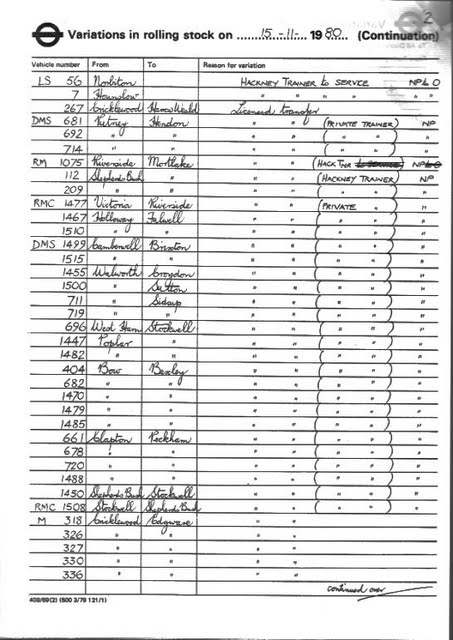 2
Variations in rolling stock on ......15.-11-.. 1980.... (Continuation)
Vehicle number From To Reason for variation
LS 56 Norbiton HACKNEY TRAINER to SERVICE NP to O
7 Hounslow " " " " " "
267 Cricklewood Harrow Weald Licensed transfer
DMS 681 Putney Hendon " " (PRIVATE TRAINER) NP
692 " " " " ( " " ) "
714 " " " " ( " " ) "
RM 1075 Riverside Mortlake " " (HACK TNER to SERVICE) NP to O
112 Shepherds Bush " " " (HACKNEY TRAINER) NP
209 " " " " ( " " ) "
RMC 1477 Victoria Riverside " " (PRIVATE " ) "
1467 Holloway Fulwell " " ( " " ) "
1510 " " " " ( " " ) "
DMS 1499 Camberwell Brixton " " ( " " ) "
1515 " " " " ( " " ) "
1455 Walworth Croydon " " ( " " ) "
1500 " Sutton " " ( " " ) "
711 " Sidcup " " ( " " ) "
719 " " " " ( " " ) "
696 West Ham Stockwell " " ( " " ) "
1447 Poplar " " " ( " " ) "
1482 " " " " ( " " ) "
404 Bow Bexley " " ( " " ) "
682 " " " " ( " " ) "
1470 " " " " ( " " ) "
1479 " " " " ( " " ) "
1485 " " " " ( " " ) "
661 Clapton Peckham " " ( " " ) "
678 " " " " ( " " ) "
720 " " " " ( " " ) "
1488 " " " " ( " " ) "
1450 Shepherds Bush Stockwell " " ( " " ) "
RMC 1508 Stockwell Shepherds Bush " " ( " " ) "
M 318 Cricklewood Edgware " "
326 " " " "
327 " " " "
330 " " " "
336 " " " "
continued over
409/69(2) (500 3/79 121/1)